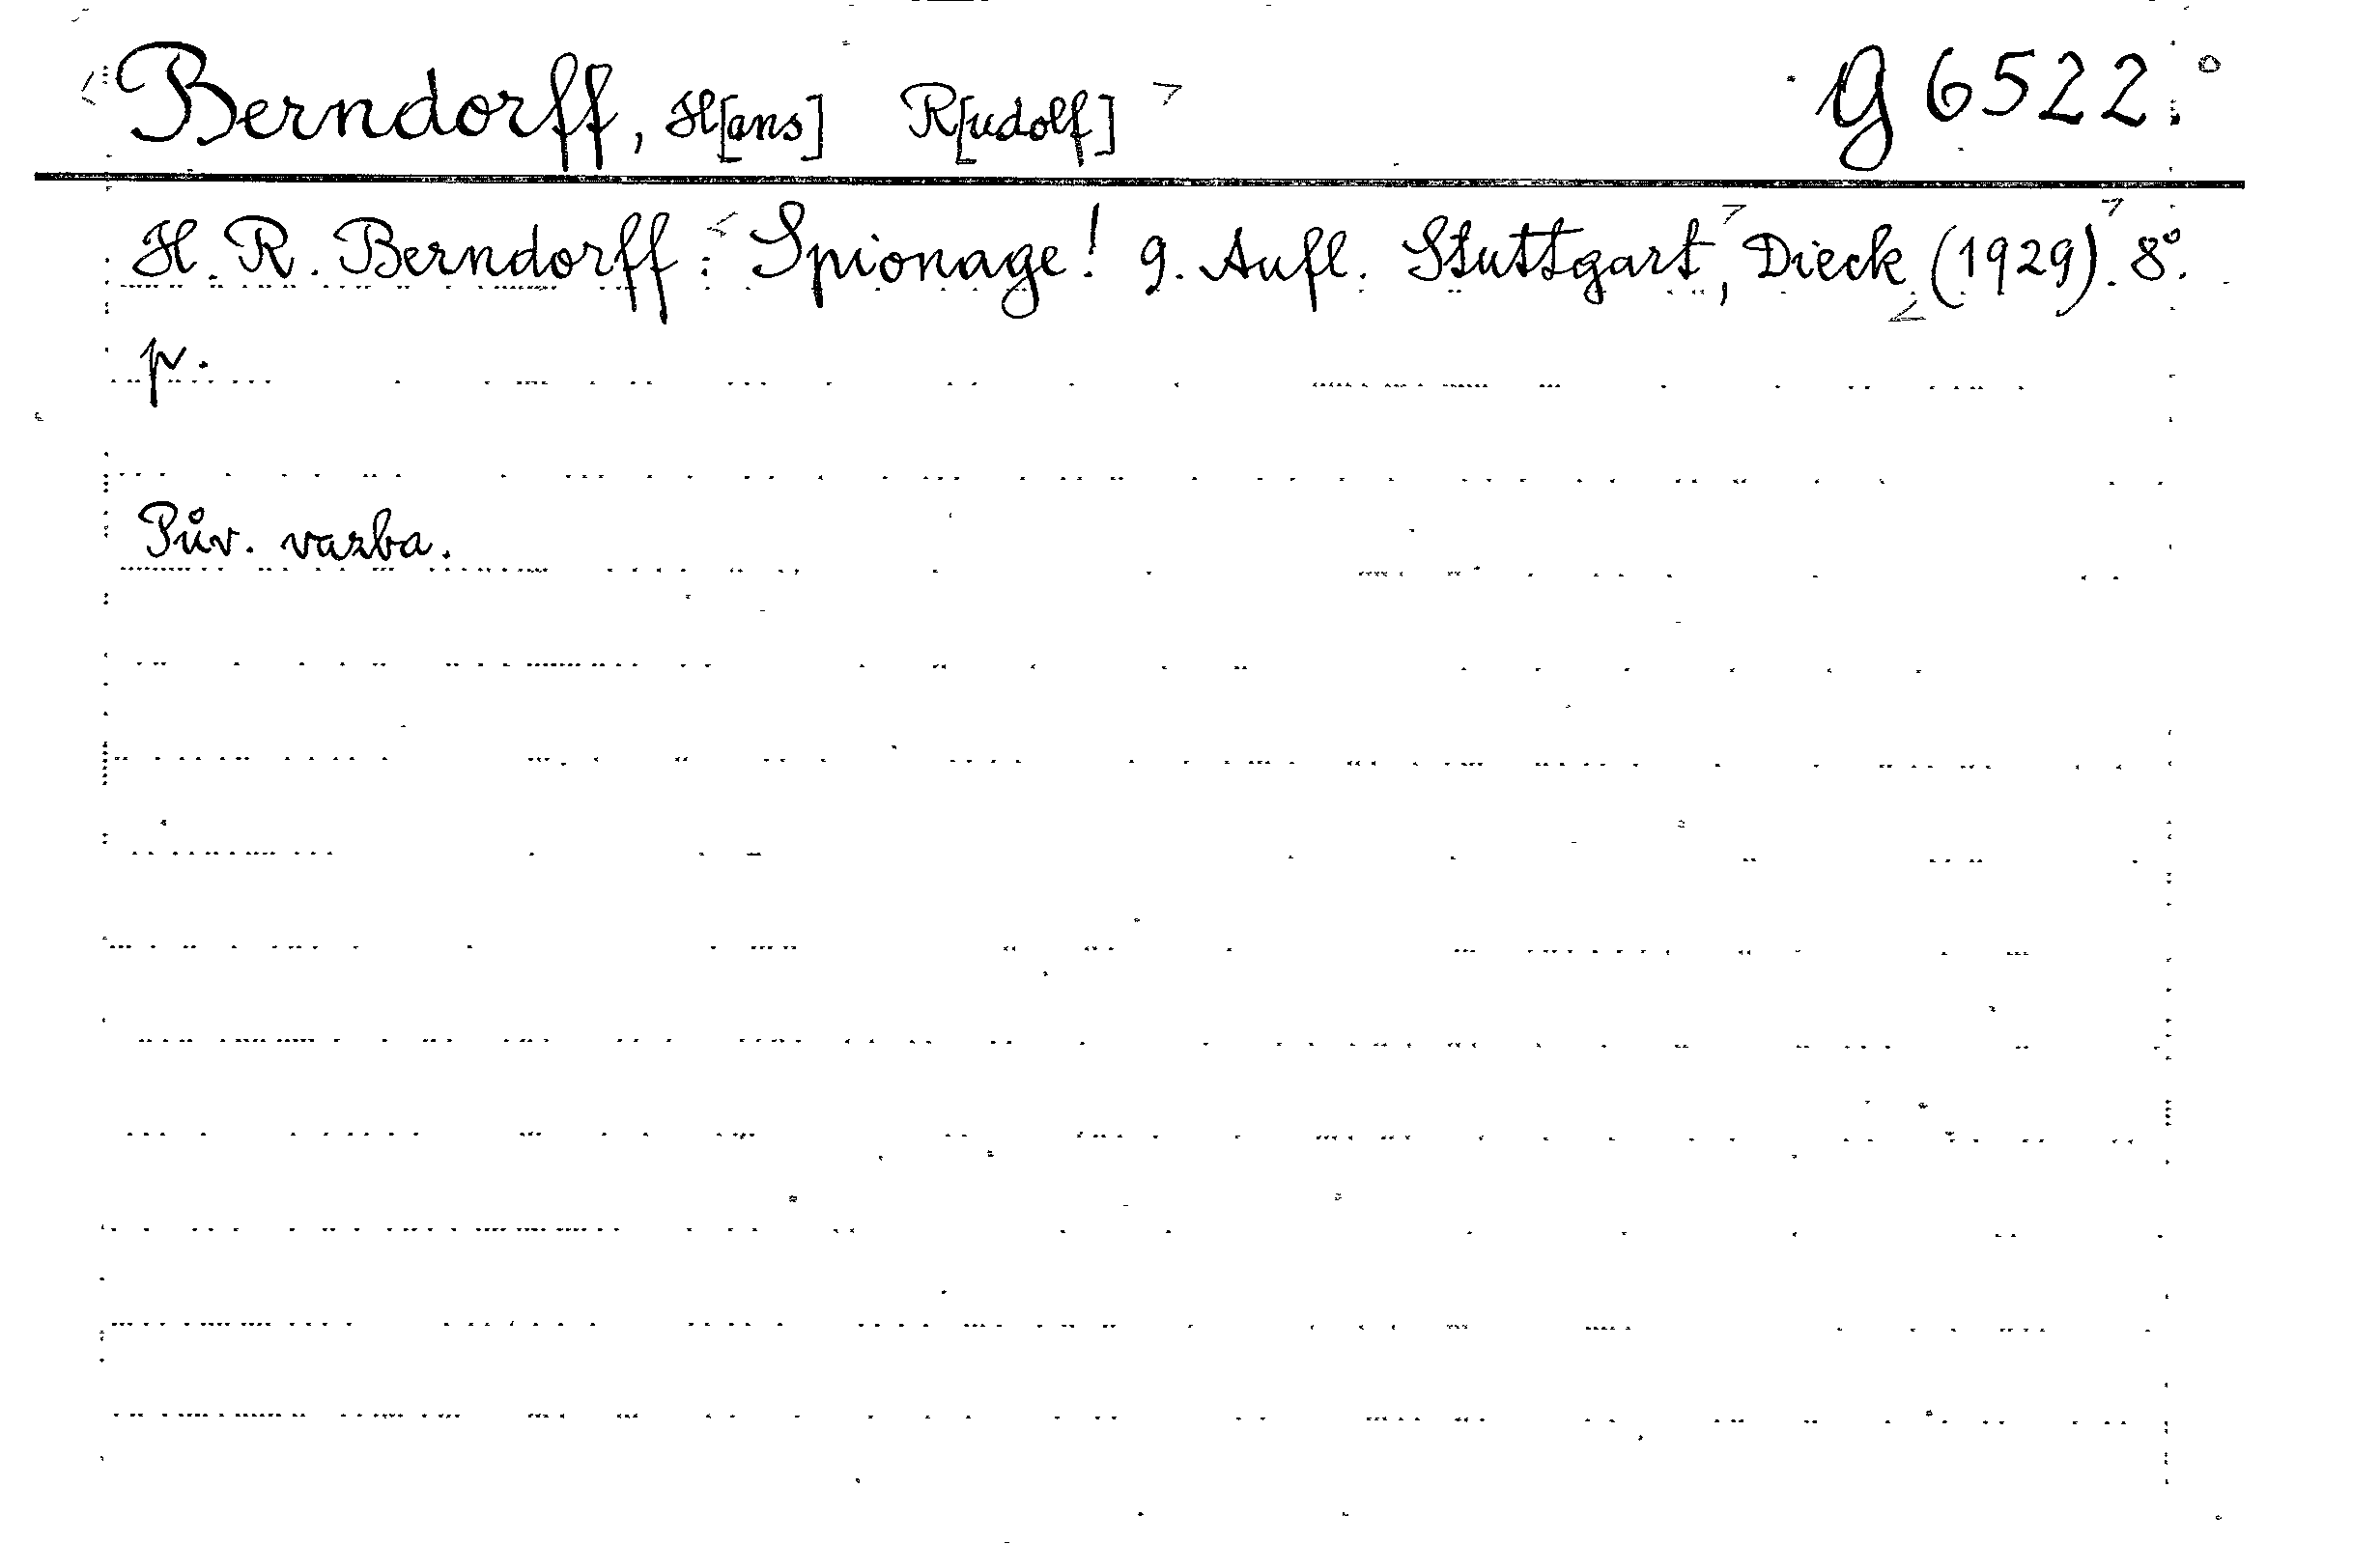 Berndorff, H[ans] R[udolf] G 6522.
H. R. Berndorff: Spionage! 9. Aufl. Stuttgart, Dieck (1929). 8°.
p.
Pův. vazba.